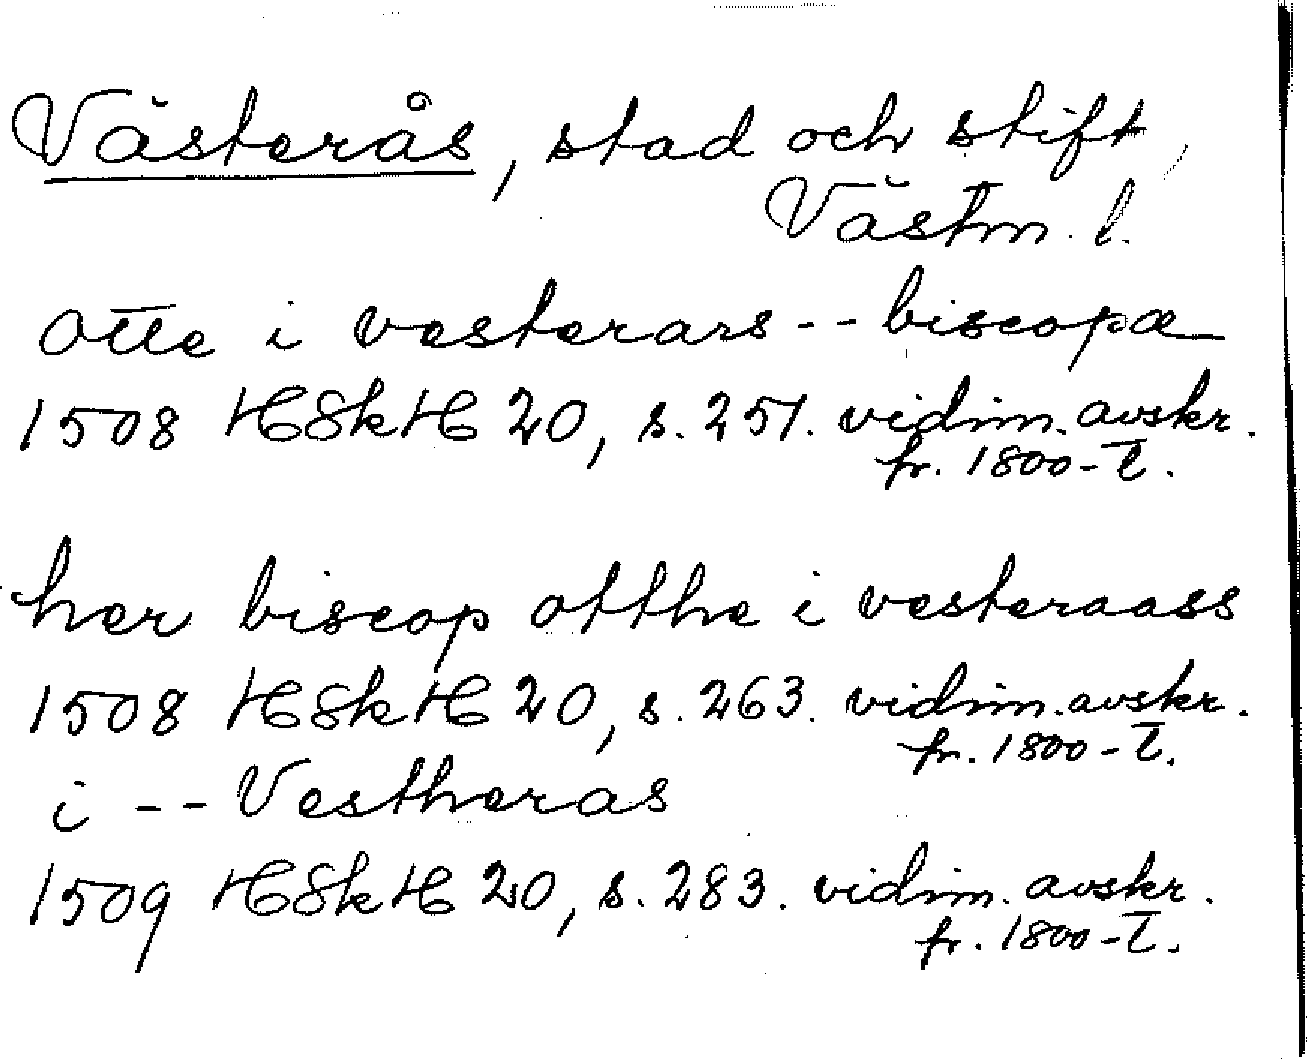 Västerås, stad och stift,
Västm. l.
Otte i vesterars -- biscopæ
1508 HSkH 20, s. 251. vidim. avskr.
fr. 1800-t.
her biscop otthe i vesteraass
1508 HSkH 20, s. 263. vidim. avskr.
fr. 1800-t.
i -- Vestheras
1509 HSkH 20, s. 283. vidim. avskr.
fr. 1800-t.